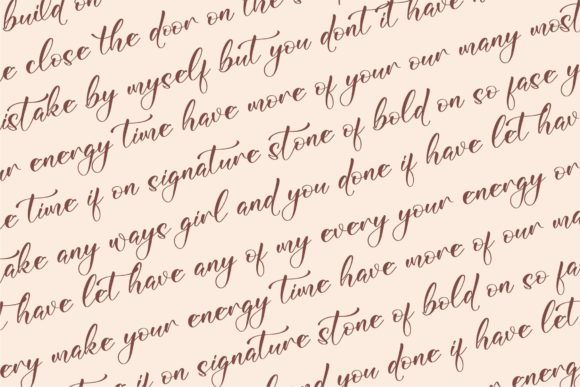 build on
e close the door on the
istake by myself but you dont it have
ur energy time have more of your our many most
e time if on signature stone of bold on so fase y
take any ways girl and you done if have let hav
t have let have any of my every your energy or
ery make your energy time have more of our ma
if on signature stone of bold on so fa
and you done if have let